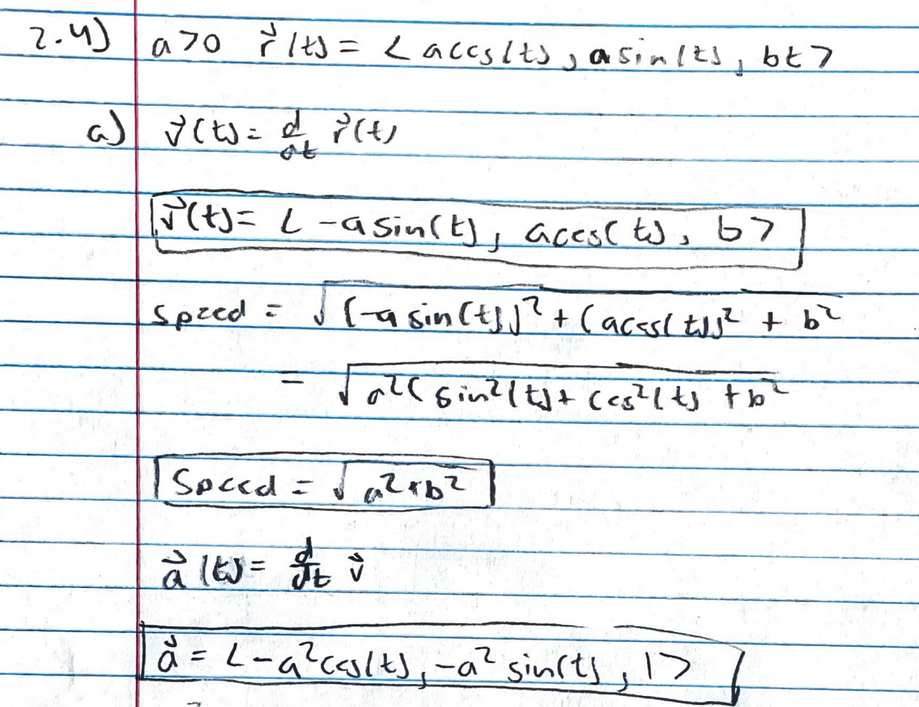 2.4) a>0 r⃗(t) = <acos(t), asin(t), bt>
a) v⃗(t) = d/dt r⃗(t)
v⃗(t) = <-asin(t), acos(t), b>
speed = √((-asin(t))² + (acos(t))² + b²)
= √(a²(sin²(t) + cos²(t) + b²
Speed = √(a²+b²)
a⃗(t) = d/dt v⃗
a⃗ = <-a²cos(t), -a²sin(t), 1>